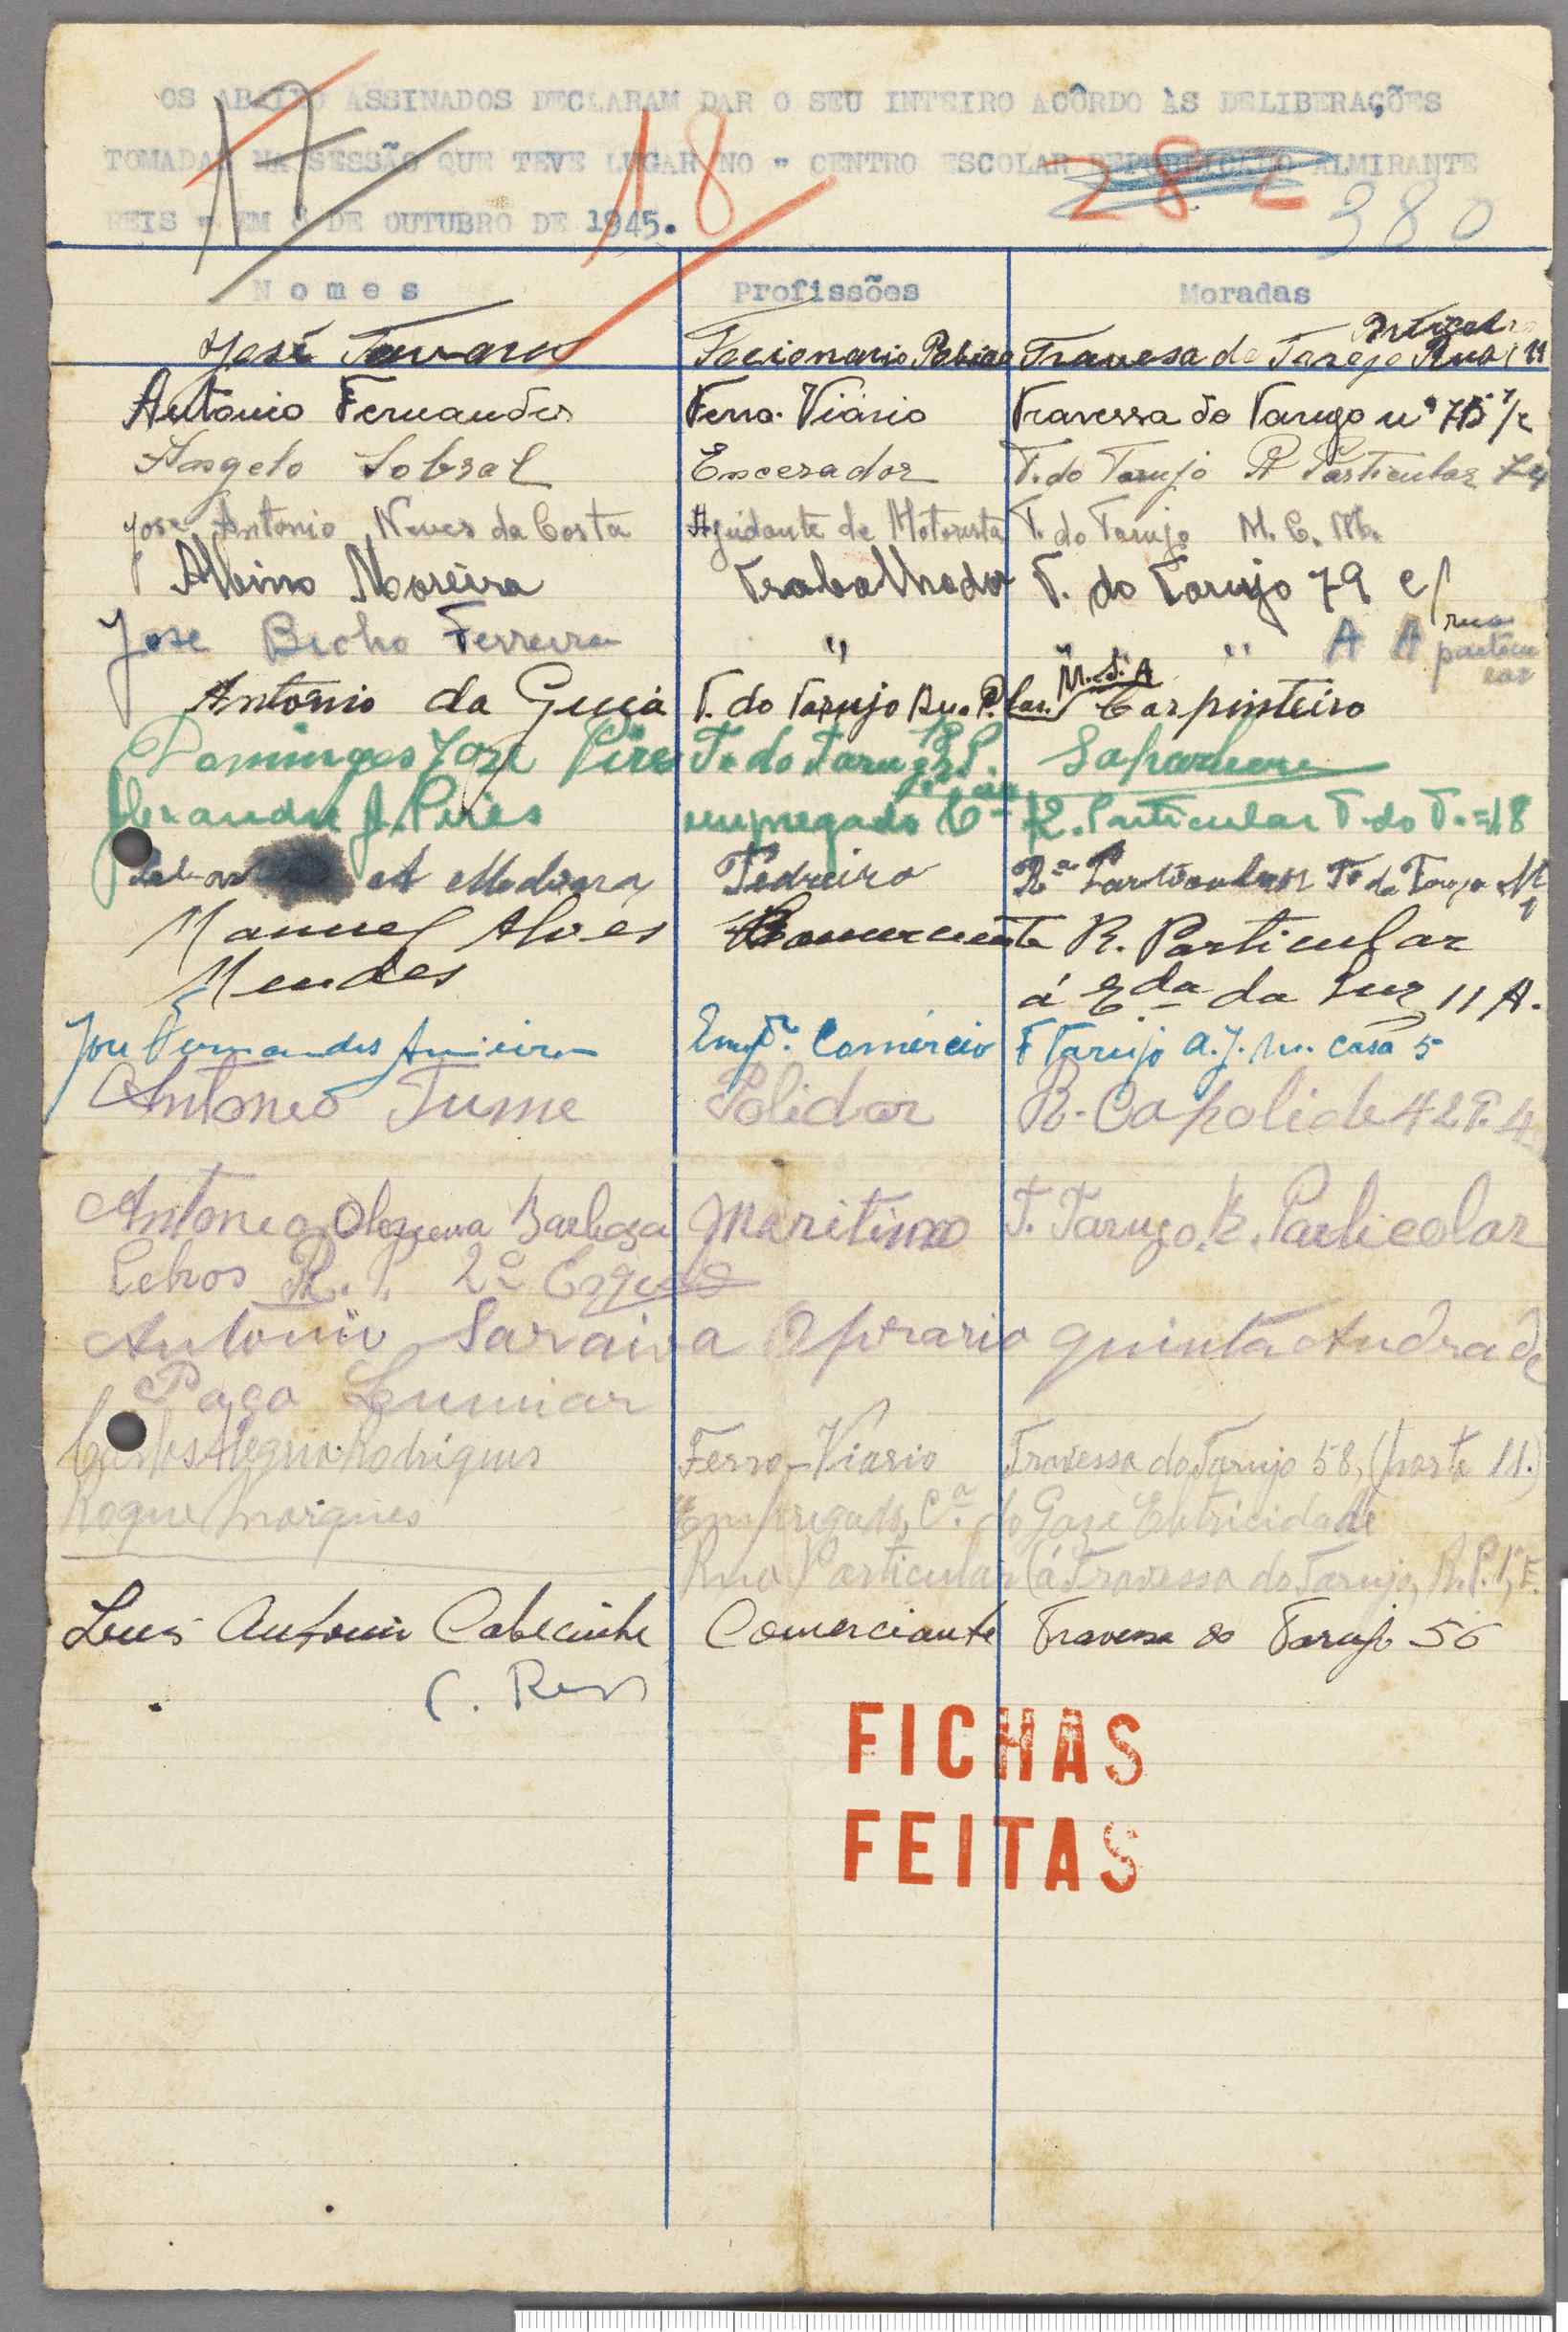 OS ABAIXO ASSINADOS DECLARAM DAR O SEU INTEIRO ACÔRDO ÀS DELIBERAÇÕES
TOMADAS NA SESSÃO QUE TEVE LUGAR NO " CENTRO ESCOLAR REPUBLICANO ALMIRANTE
REIS " EM 8 DE OUTUBRO DE 1945.
17 18 282 380
Nomes Profissões Moradas
José Tavares Travesa do Rua 11
Antonio Fernandes Ferro-Viário Travessa do Tarujo nº
Angelo Sobral Encerador T. do Tarujo R Particular
José Antonio Neves da Costa Ajudante de Motorista T. do Tarujo M. C. M.
Albino Moreira Trabalhador T. do Tarujo 79 c/
Jose Bicho Ferreira " " " " A A rua particular
Antonio da Guia T. do Tarujo Rua P.lar. M.S.A Carpinteiro
Domingos Jose Pires T. do Tarujo
J. Pires empregado Cº R. Particular T. do T. = 18
Pedreiro Rª Particular Tª do
Manuel Alves Comerciante R. Particular
Mendes á Eda da Luz 11 A.
José Fernandes Empº. Comércio T Tarujo A.J.M. casa 5
Antoneo Tume Polidor R.
Antoneo Barbosa Maritimo T. Tarujo R. Particolar
R. 2º
Antonio Saraiva Operario quinta Andrade
Paço Lumiar
Carlos Rodrigues Ferro-Viario Travessa do Tarujo 58, (porta 11.)
Roque Marques Empregado, Cª. do Gaz e Eletricidade
Rua Particular (á Travessa do Tarujo, A.P. 1º E.
Luis Antonio Cabecinha Comerciante Travessa do Tarujo 56
C. Reis
FICHAS
FEITAS